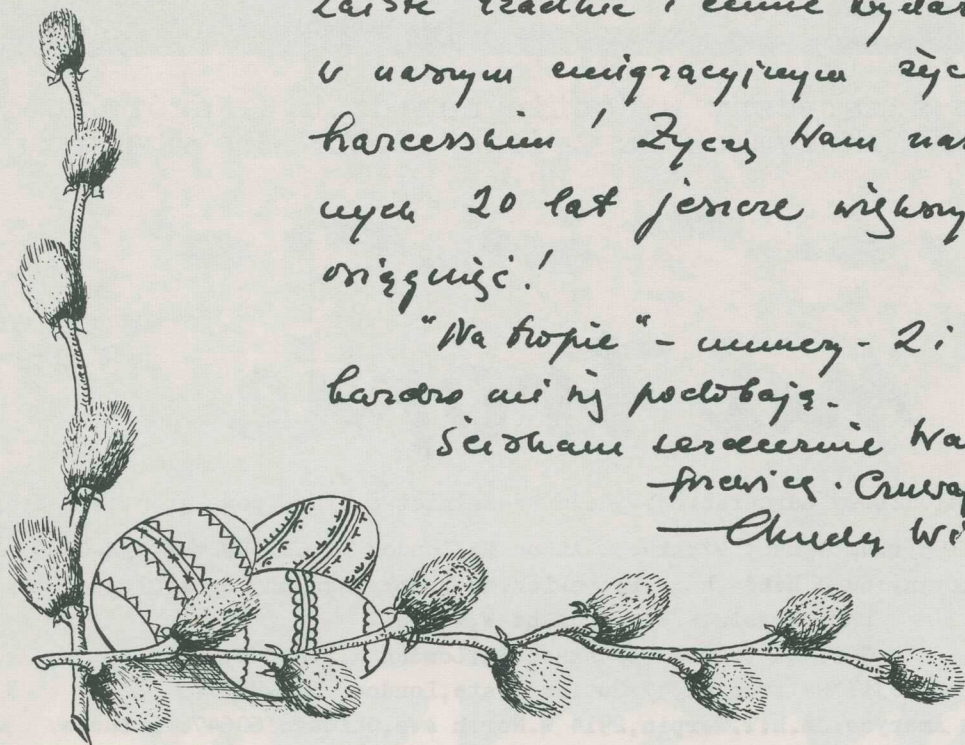 Zaiste rzadkie i cenne wydar
w naszym emigracyjnym życ
harcerskim! Życzę Wam nas
nych 20 lat jeszcze większy
osiągnięć!
"Na tropie" - numery - 2 i
bardzo mi się podobają.
Ściskam serdecznie Wa
Czuwaj
Chudy Wi